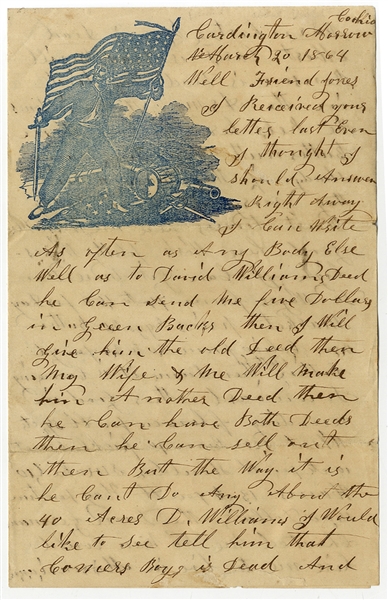 Cardington Morrow Co Ohio
March 20 1864
Well Friend Jones
I Reiceived your
letter last Even
I thought I
should Answer
Right Away
I Can Write
As often as Any Body Else
Well as to David Williams Deed
he Can send Me five Dollars
in Green Backs then I Will
Give him the old Deed then
My Wife & Me Will make
him Another Deed then
he Can have Both Deeds
then he Can sell out
then But the Way it is
he Cant Do Any About the
40 Acres D. Williams I Would
like to see tell him that
Comers Boy is Dead And